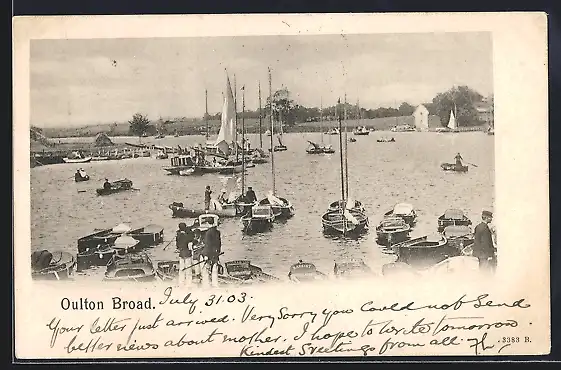 Oulton Broad. July 31.03. Very Sorry you Could not Send
Your letter just arrived.
better news about mother. I hope to write tomorrow.
Kindest Greetings from all
3383 B.